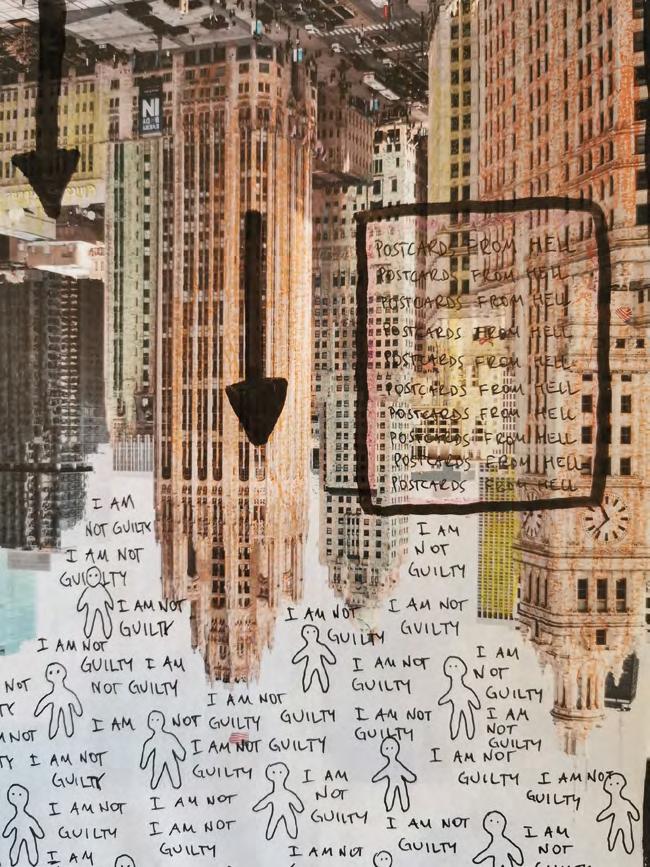 IN
POSTCARDS FROM HELL
POSTCARDS FROM HELL
POSTCARDS FROM HELL
POSTCARDS FROM HELL
POSTCARDS FROM HELL
POSTCARDS FROM HELL
POSTCARDS FROM HELL
POSTCARDS FROM HELL
POSTCARDS FROM HELL
POSTCARDS FROM HELL
I AM
NOT GUILTY
I AM NOT
GUILTY
I AM NOT
GUILTY
I AM
NOT
GUILTY
I AM NOT
GUILTY
I AM NOT
GUILTY
I AM NOT
GUILTY I AM
NOT GUILTY
I AM NOT
GUILTY
I AM
NOT
GUILTY
NOT
TY
I AM NOT
GUILTY GUILTY
I AM NOT
GUILTY
I AM
NOT
GUILTY
I AM NOT
I AM NOT GUILTY
GUILTY
NOT
TY
I AM NOT
GUILTY
I AM
NOT
GUILTY
I AM NOT
GUILTY
I AM NOT
GUILTY
I AM NOT
GUILTY
I AM NOT
I AM NOT
GUILTY
I AM NOT
GUILTY
I AM
NOT
I AM
I AM NOT